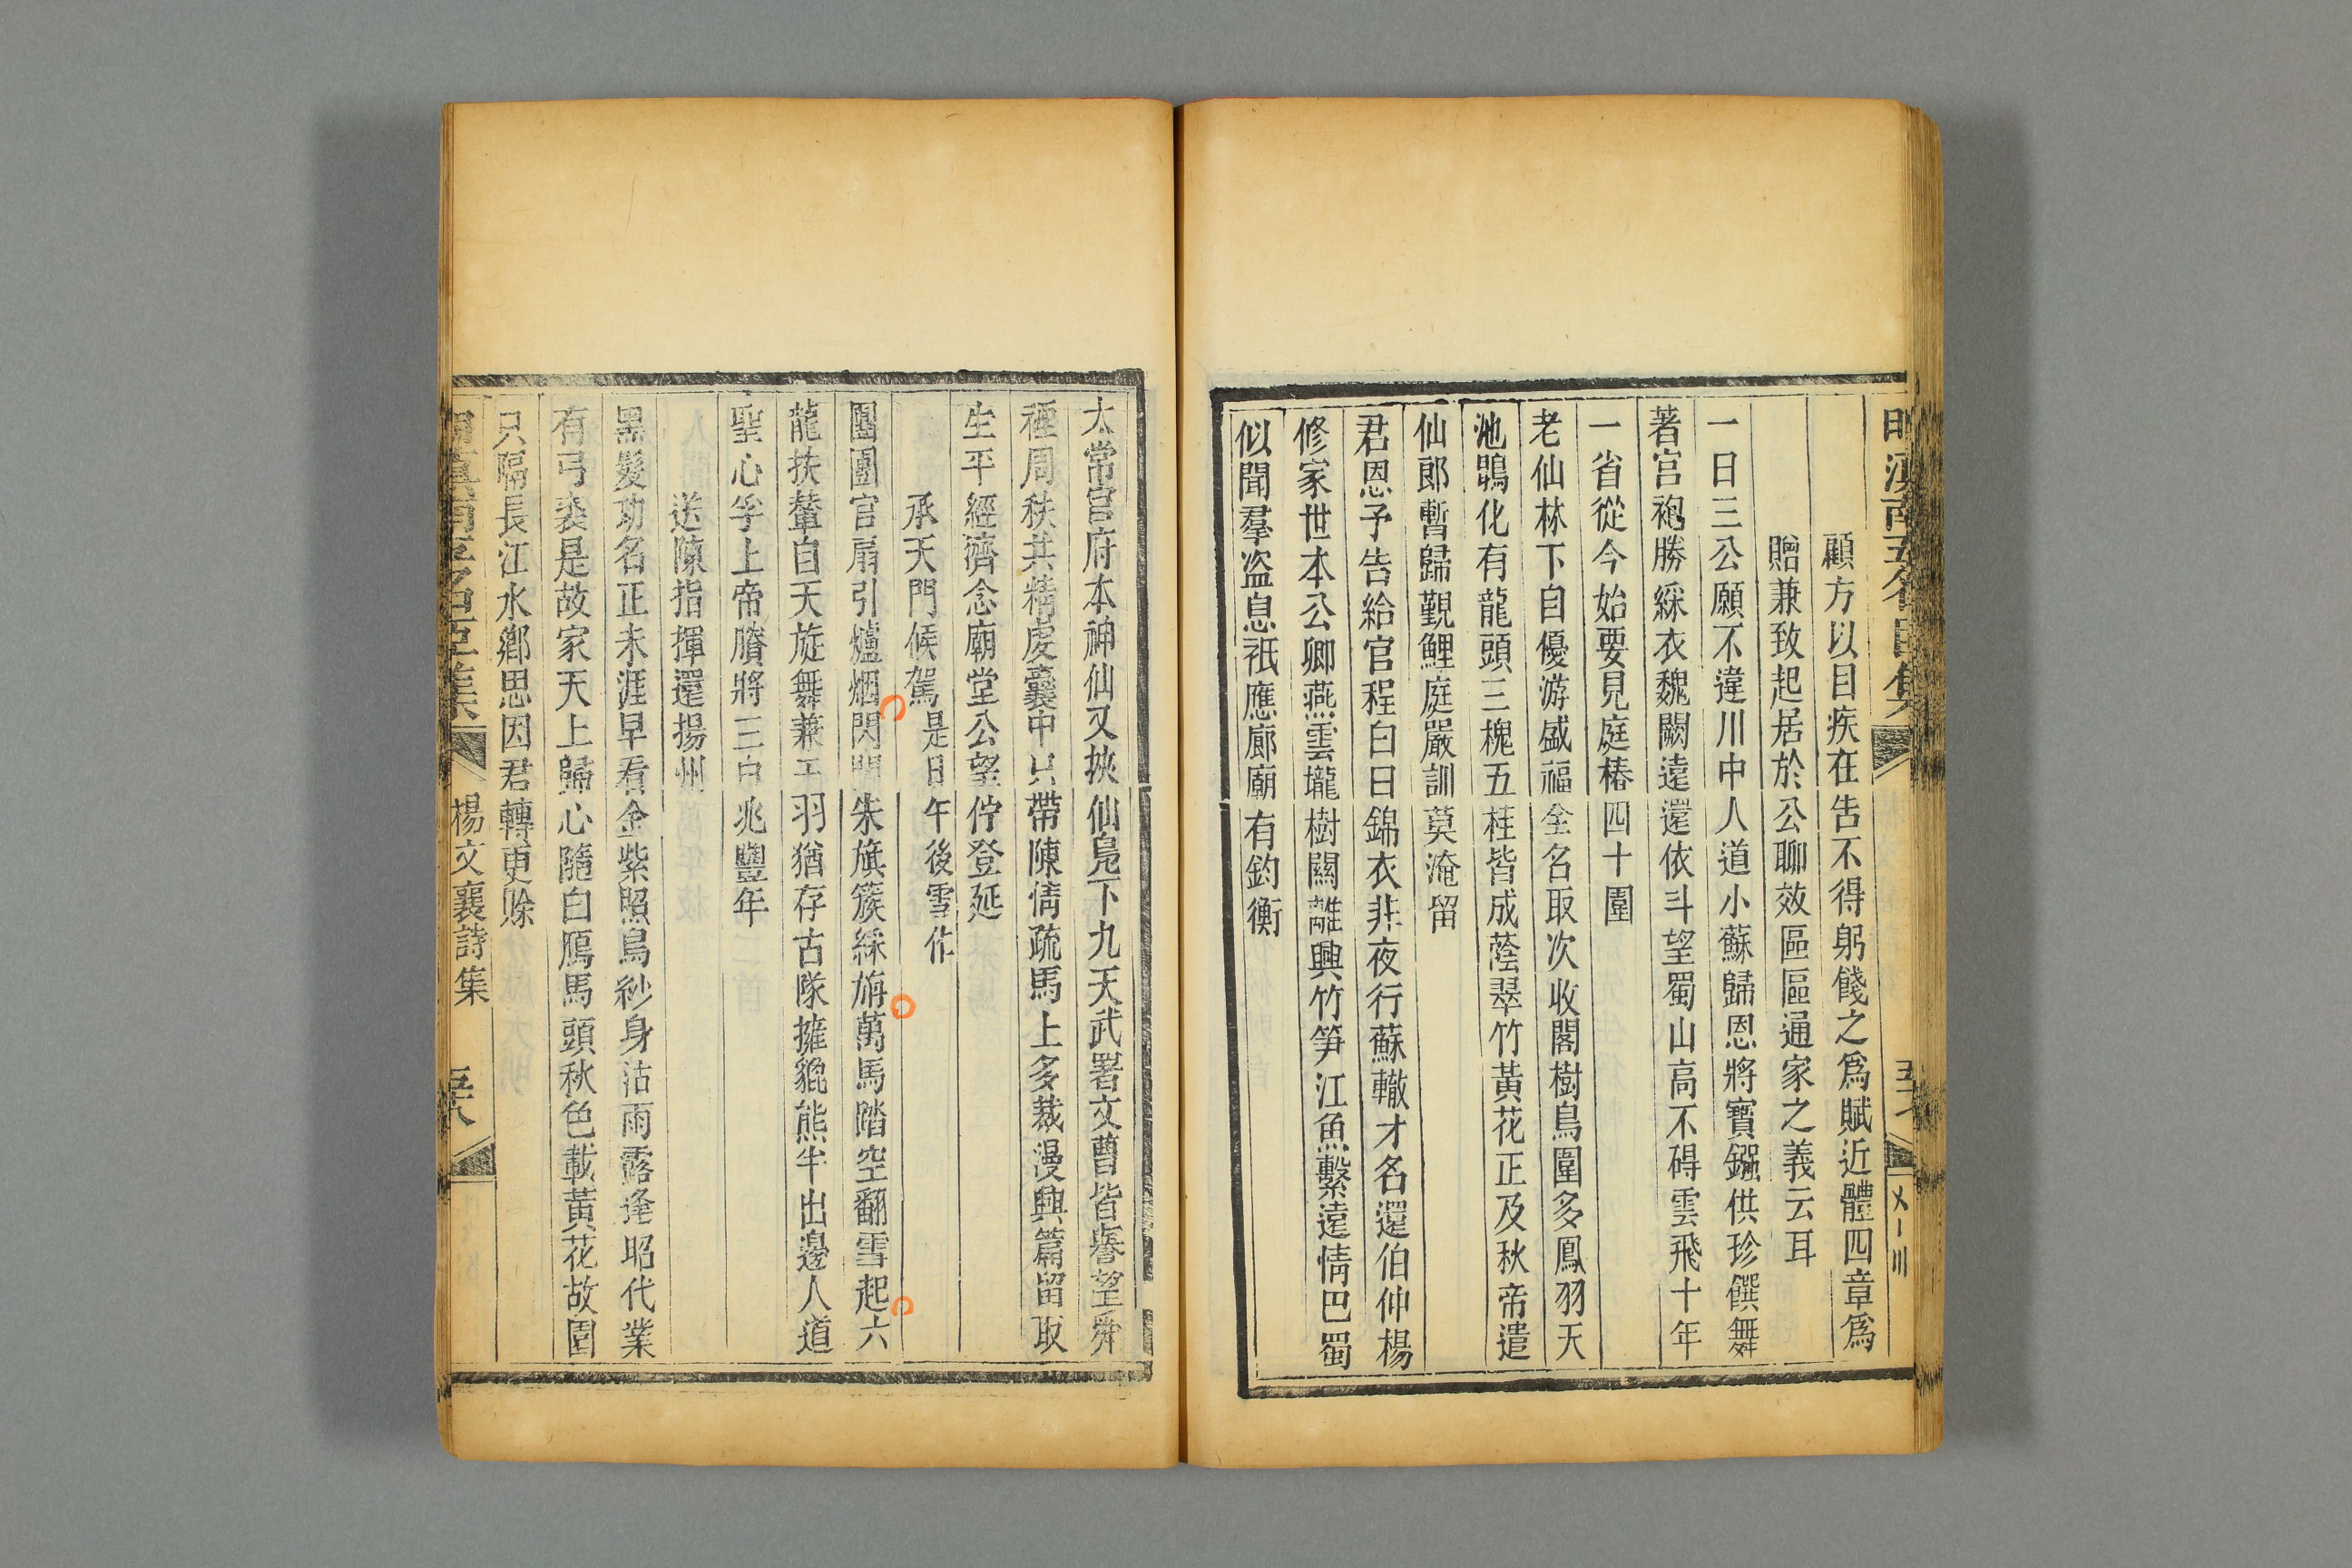 顧方以目疾在告不得躬餞之爲賦近體四章爲
贈兼致起居於公聊效區區通家之義云耳
一日三公願不違川中人道小蘇歸恩將寶鏹供珍饌舞
著宮袍勝綵衣魏闕遠還依斗望蜀山高不碍雲飛十年
一省從今始要見庭椿四十圍
老仙林下自優游盛福全名取次收閣樹鳥圍多鳳羽天
池鵾化有龍頭三槐五桂皆成蔭翠竹黃花正及秋帝遣
仙郎暫歸覲鯉庭嚴訓莫淹留
君恩予告給官程白日錦衣非夜行蘇轍才名還伯仲楊
修家世本公卿燕雲壠樹關離興竹笋江魚繫遠情巴蜀
似聞羣盜息祇應廊廟有鈞衡
太常官府本神仙又挾仙鳧下九天武署文曹皆譽望舜
禋周秩共精虔囊中只帶陳情疏馬上多裁漫興篇留取
生平經濟念廟堂公望佇登延
承天門候駕是日午後雪作
團團官扇引爐烟閃閃朱旗簇綵旃萬馬踏空翻雪起六
龍扶輦自天旋舞兼干羽猶存古隊擁貔熊半出邊人道
聖心孚上帝賸將三白兆豐年
送陳指揮還揚州
黑髮功名正未涯早看金紫照烏紗身沾雨露逢昭代業
有弓裘是故家天上歸心隨白鴈馬頭秋色載黃花故園
只隔長江水鄉思因君轉更賖
楊文襄詩集